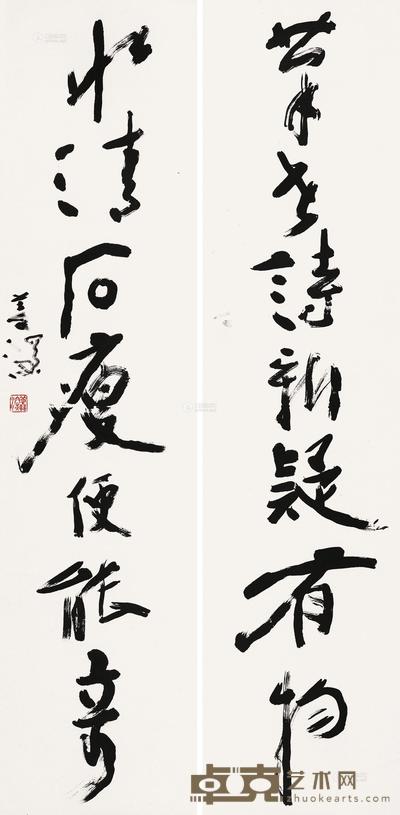 筆老詩新疑有物
水清石瘦便能奇
卓克艺术网
zhuokearts.com